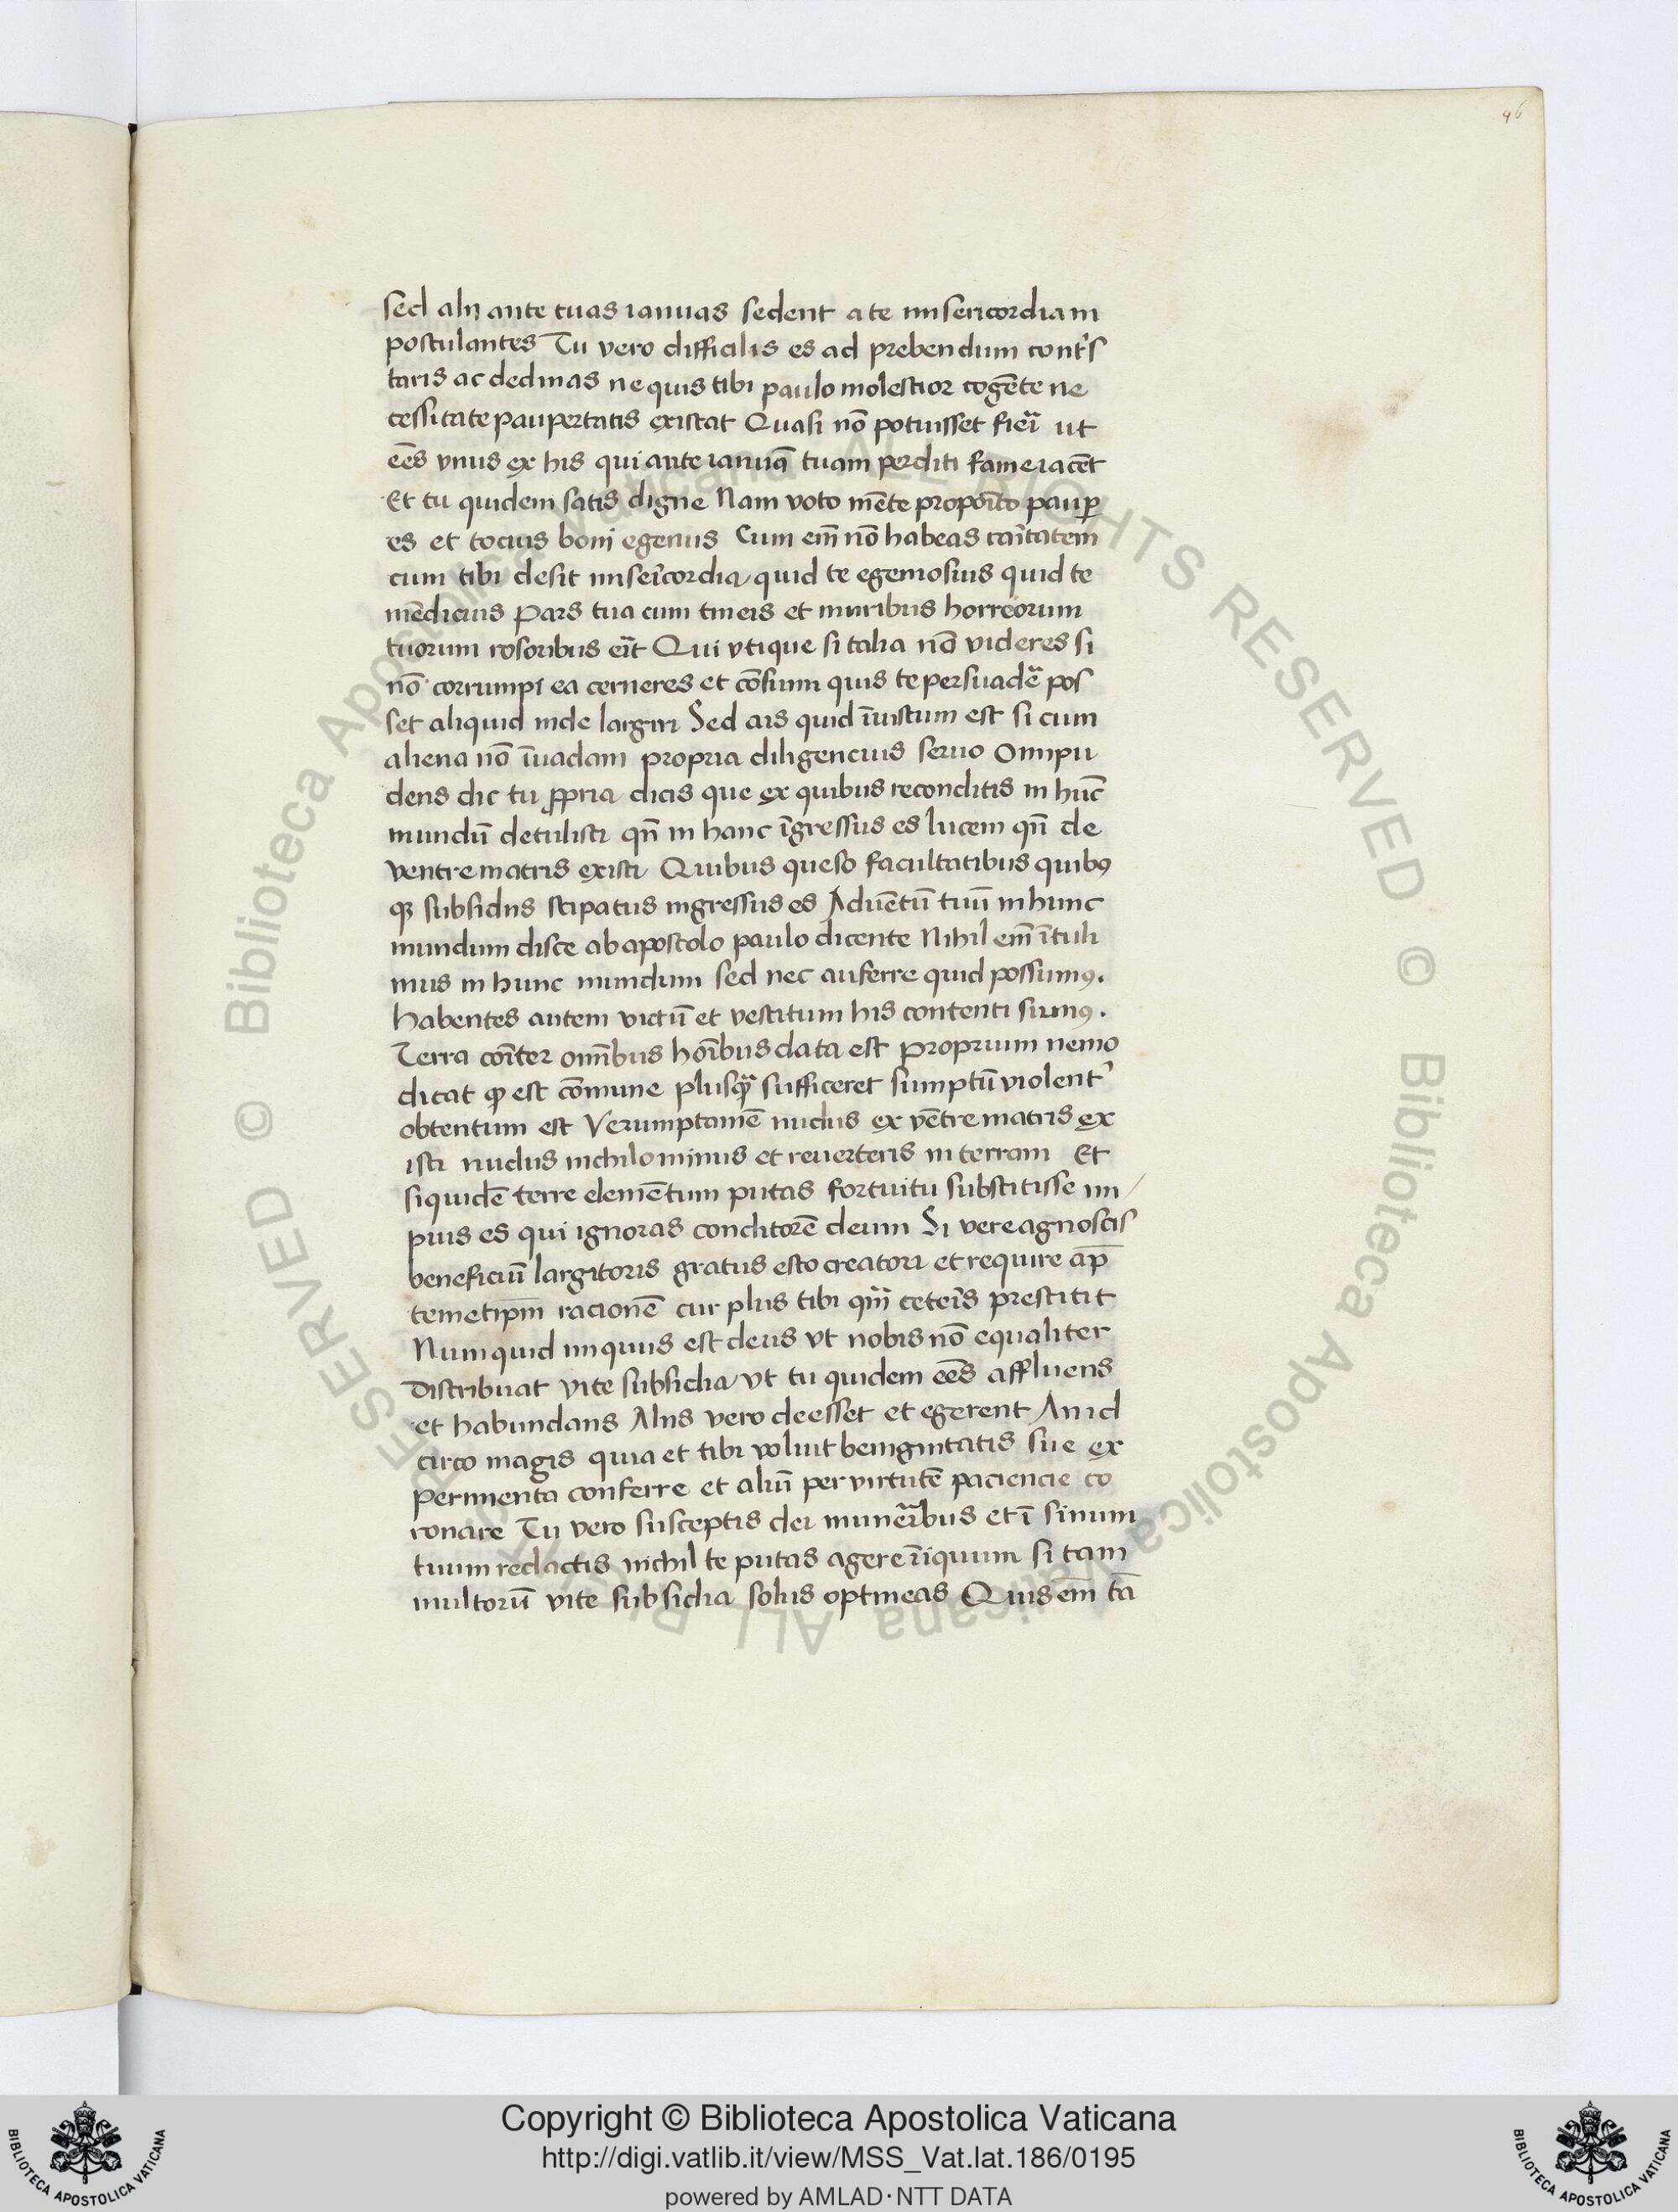 96
sed alij ante tuas ianuas sedent a te misericordiam
postulantes Tu vero difficilis es ad prebendum contˢ
taris ac declinas ne quis tibi paulo molestior cogēte ne
cessitate paupertatis existat Quasi nō potuisset fieri ut
eēs vnus ex his qui ante ianuā tuam perditi fame iacēt
Et tu quidem satis digne Nam voto mēte proposito paup̄
es et tocius boni egenus Cum em̄ nō habeas caritatem
cum tibi desit misericordia quid te egemosius quid te
mēdicius Pars tua cum tineis et muribus horreorum
tuorum rosoribus erit Qui vtique si talia nō videres si
nō corrumpi ea cerneres et cōsumi quis te persuadere pos
set aliquid inde largiri Sed ais quid īiustum est si cum
aliena nō īuadam propria diligencius seruo O impu
dens dic tu ꝓpria dicis que ex quibus reconditis in hūc
mundū detulisti qn̄ in hanc īgressus es lucem qn̄ de
ventre matris existi Quibus queso facultatibus quibꝰ
qꝫ subsidiis stipatus ingressus es Aduētū tuū in hunc
mundum disce ab apostolo paulo dicente Nihil em̄ ītuli
mus in hunc mundum sed nec auferre quid possumꝰ.
Habentes autem victū et vestitum his contenti sumꝰ.
Terra cōiter omībus hoībus data est Proprium nemo
dicat qđ est cōmune plusqᵃ sufficeret sumptū violentʳ
obtentum est Verumptamē nudus ex vētre matris ex
isti nudus nichilominus et reuerteris in terram Et
siquidē terre elemētum putas fortuitu substitisse im/
pius es qui ignoras conditorē deum Si vere agnoscis
beneficiū largitoris gratus esto creatori et require ap̄
temetip̄m racionē cur plus tibi qᵃm ceteris prestitit
Numquid iniquus est deus vt nobis nō equaliter
distribuat vite subsidia vt tu quidem eēs affluens
et habundans Aliis vero deesset et egerent An id
circo magis quia et tibi voluit benignitatis sue ex
perimenta conferre et aliū per virtutē paciencie co
ronare Tu vero susceptis dei muneribus et ī sinum
tuum redactis nichil te putas agere iniquum si tam
multorū vite subsidia solus optineas Quis em̄ tā
Copyright © Biblioteca Apostolica Vaticana
http://digi.vatlib.it/view/MSS_Vat.lat.186/0195
powered by AMLAD·NTT DATA
BIBLIOTECA APOSTOLICA VATICANA
BIBLIOTECA APOSTOLICA VATICANA
© Biblioteca Apostolica Vaticana ALL RIGHTS RESERVED
© Biblioteca Apostolica Vaticana ALL RIGHTS RESERVED